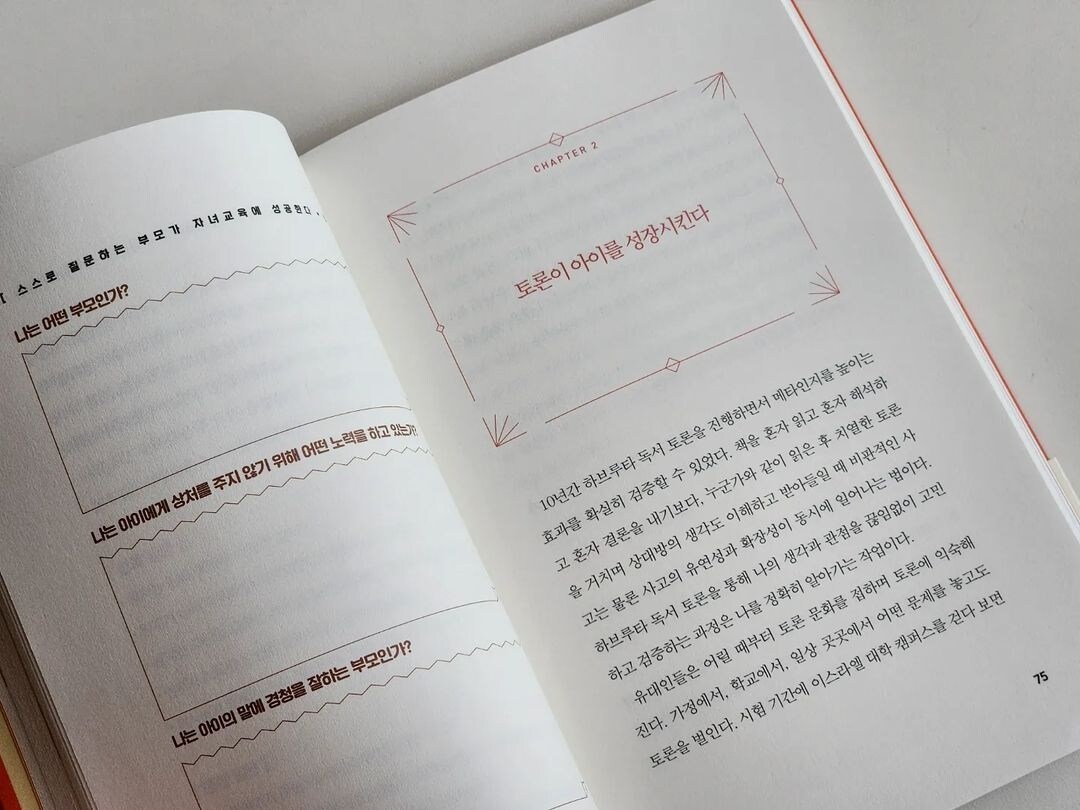 스스로 질문하는 부모가 자녀교육에 성공한다
나는 어떤 부모인가?
나는 아이에게 상처를 주지 않기 위해 어떤 노력을 하고 있는가?
나는 아이의 말에 경청을 잘하는 부모인가?
CHAPTER 2
토론이 아이를 성장시킨다
10년간 하브루타 독서 토론을 진행하면서 메타인지를 높이는
효과를 확실히 검증할 수 있었다. 책을 혼자 읽고 혼자 해석하
고 혼자 결론을 내기보다, 누군가와 같이 읽은 후 치열한 토론
을 거치며 상대방의 생각도 이해하고 받아들일 때 비판적인 사
고는 물론 사고의 유연성과 확장성이 동시에 일어나는 법이다.
하브루타 독서 토론을 통해 나의 생각과 관점을 끊임없이 고민
하고 검증하는 과정은 나를 정확히 알아가는 작업이다.
유대인들은 어릴 때부터 토론 문화를 접하며 토론에 익숙해
진다. 가정에서, 학교에서, 일상 곳곳에서 어떤 문제를 놓고도
토론을 벌인다. 시험 기간에 이스라엘 대학 캠퍼스를 걷다 보면
75